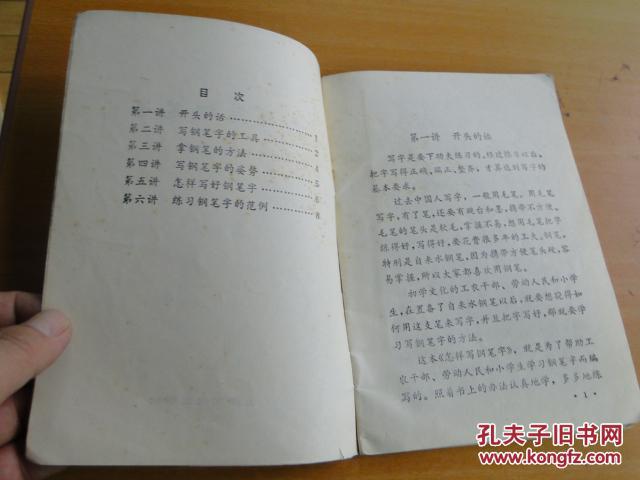 目次
第一讲 开头的话……………………1
第二讲 写钢笔字的工具……………2
第三讲 拿钢笔的方法………………4
第四讲 写钢笔字的姿势……………5
第五讲 怎样写好钢笔字……………6
第六讲 练习钢笔字的范例…………8
第一讲 开头的话
写字是要下功夫练习的。经过练习以后，
把字写得正确、端正、整齐，才算达到写字的
基本要求。
过去中国人写字，一般用毛笔。用毛笔
写字，有了笔，还要有砚台和墨，携带不方便。
毛笔的笔头是软毛，掌握不易，想用毛笔把字
练得好，写得好，要花费很多年的工夫。钢笔，
特别是自来水钢笔，因为携带方便笔头硬，容
易掌握，所以大家都喜欢用钢笔。
初学文化的工农干部、劳动人民和小学
生，在置备了自来水钢笔以后，就要想晓得如
何用这支笔来写字，并且把字写好，那就要学
习写钢笔字的方法。
这本《怎样写钢笔字》，就是为了帮助工
农干部、劳动人民和小学生学习钢笔字而编
写的。照着书上的办法认真地学，多多地练
·1·
孔夫子旧书网
www.kongfz.com